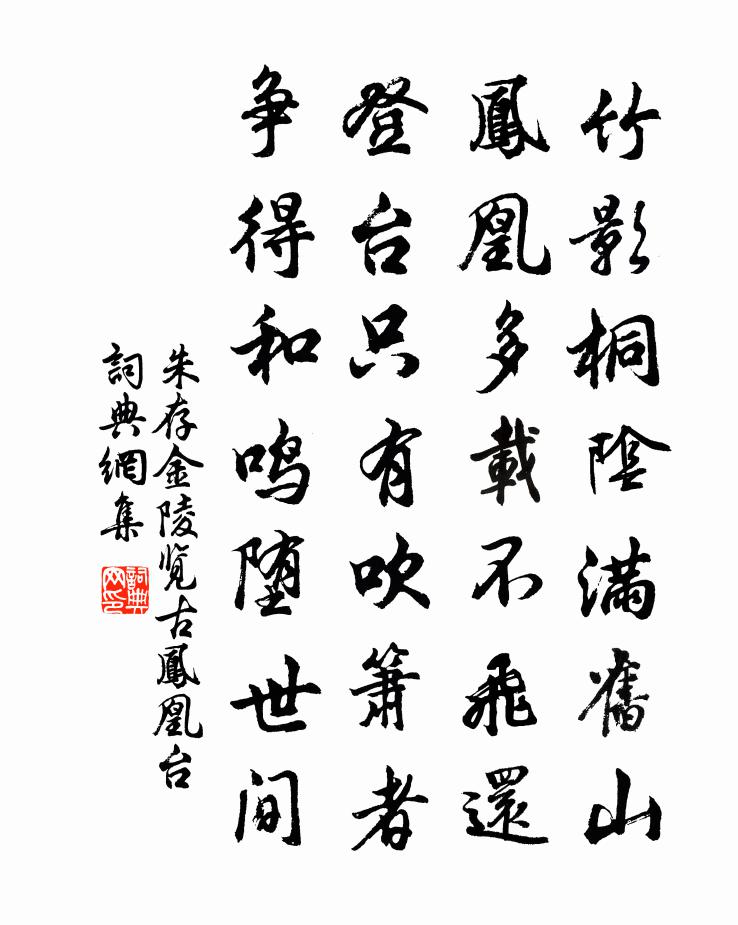 竹影桐陰滿舊山
鳳凰多載不飛還
登台只有吹簫者
争得和鸣堕世间
朱存金陵览古鳳凰台
詞典網集
詞典网印